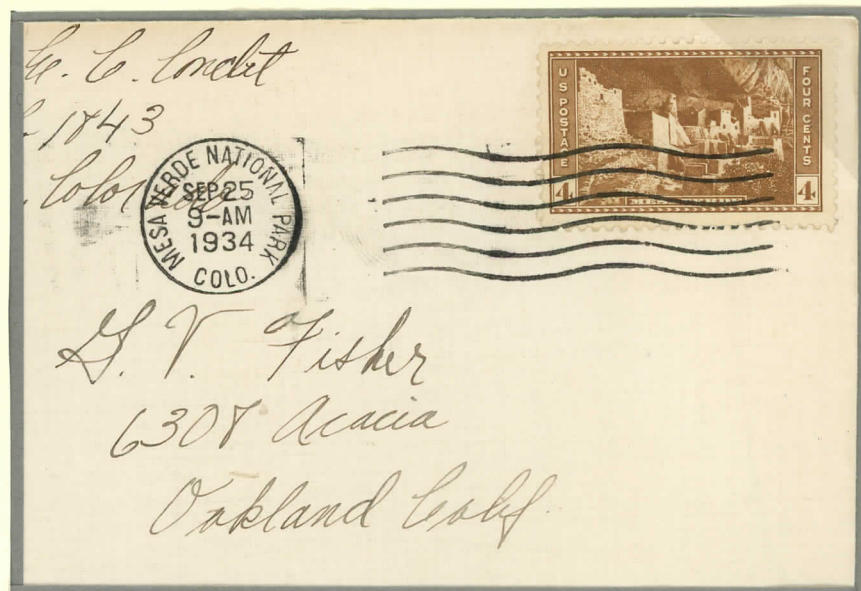 C. Condit
1843
Colorado
MESA VERDE NATIONAL PARK
SEP 25
9-AM
1934
COLO.
U S POSTAGE
FOUR CENTS
4
4
G. V. Fisher
6308 Acacia
Oakland Calif.